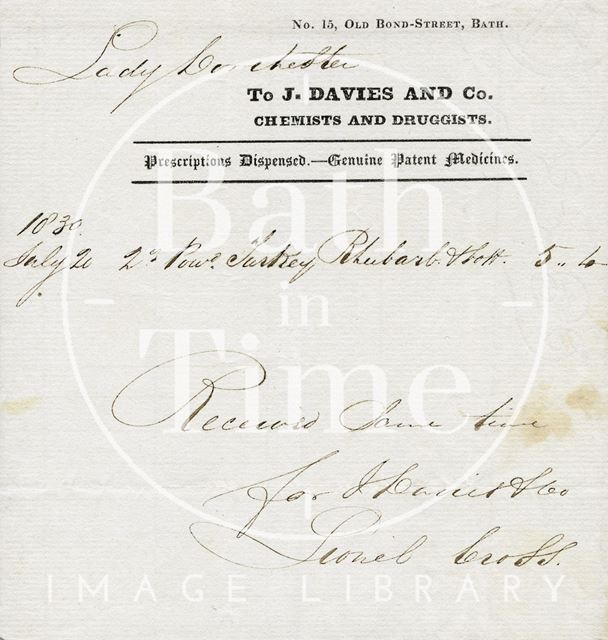 No. 15, Old Bond-Street, Bath.
Lady Dorchester
To J. DAVIES AND Co.
CHEMISTS AND DRUGGISTS.
Prescriptions Dispensed.—Genuine Patent Medicines.
1830
July 20 2 Powd Turkey Rhubarb & bott 5 „ 4
Received Same time
for J Davies & Co
Lionel Cross.
Bath
in
Time
IMAGE LIBRARY